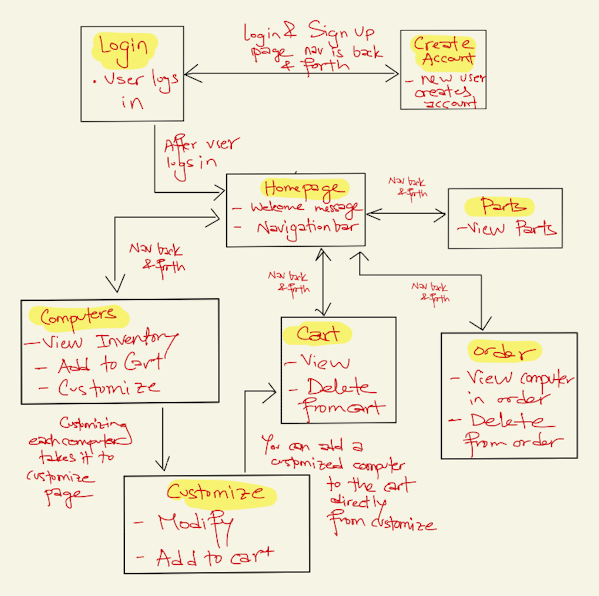 Login
• User logs
in
Login & Sign Up
page nav is back
& forth
Create
Account
- new user
creates
account
After user
logs in
Homepage
- Welcome message
- Navigation bar
Nav back
& forth
Parts
- View Parts
Nav back
& forth
Nav back
& forth
Nav back
& forth
Computers
- View Inventory
- Add to Cart
- Customize
Cart
- View
- Delete
from cart
Order
- View computer
in order
- Delete
from order
Customizing
each computer
takes it to
customize
page
You can add a
customized computer
to the cart
directly
from customize
Customize
- Modify
- Add to cart